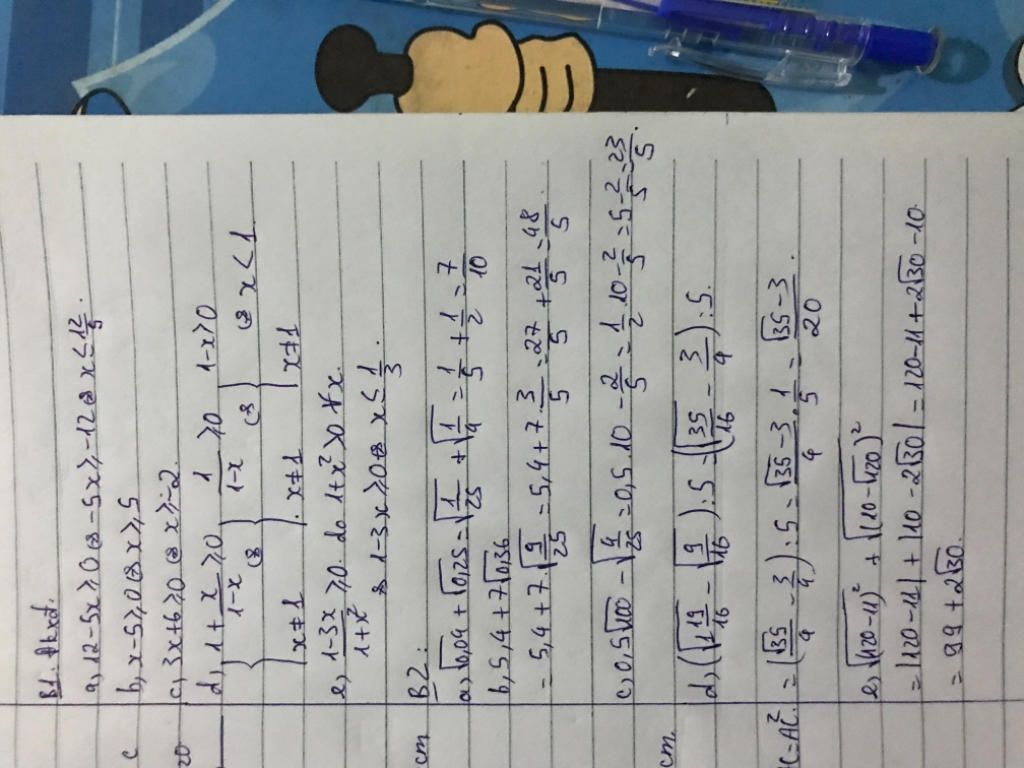 B1: Đkxđ.
a, 12-5x ≥ 0 ⇔ -5x ≥ -12 ⇔ x ≤ 12/5
b, x-5 ≥ 0 ⇔ x ≥ 5
c, 3x+6 ≥ 0 ⇔ x ≥ -2
d, { 1 + x/(1-x) ≥ 0 ; x ≠ 1 ⇔ { 1/(1-x) ≥ 0 ; x ≠ 1 ⇔ { 1-x ≥ 0 ; x ≠ 1 ⇔ x < 1
e, (1-3x)/(1+x²) ≥ 0. do 1+x² > 0 ∀x.
⇔ 1-3x ≥ 0 ⇔ x ≤ 1/3.
B2:
a) √0,04 + √0,25 = √(1/25) + √(1/4) = 1/5 + 1/2 = 7/10
b, 5,4 + 7√0,36
= 5,4 + 7.√(9/25) = 5,4 + 7.3/5 = 27/5 + 21/5 = 48/5.
c, 0,5√100 - √(4/25) = 0,5.10 - 2/5 = 1/2.10 - 2/5 = 5 - 2/5 = 23/5
d, (√(1 19/16) - √(9/16)) : 5 = (√(35/16) - 3/4) : 5.
= (√35/4 - 3/4) : 5 = (√35-3)/4 . 1/5 = (√35-3)/20.
e, √(120-11)² + √(10-√120)²
= |120-11| + |10-2√30| = 120-11+2√30-10.
= 99 + 2√30.
c
20
cm
cm
C=AC².